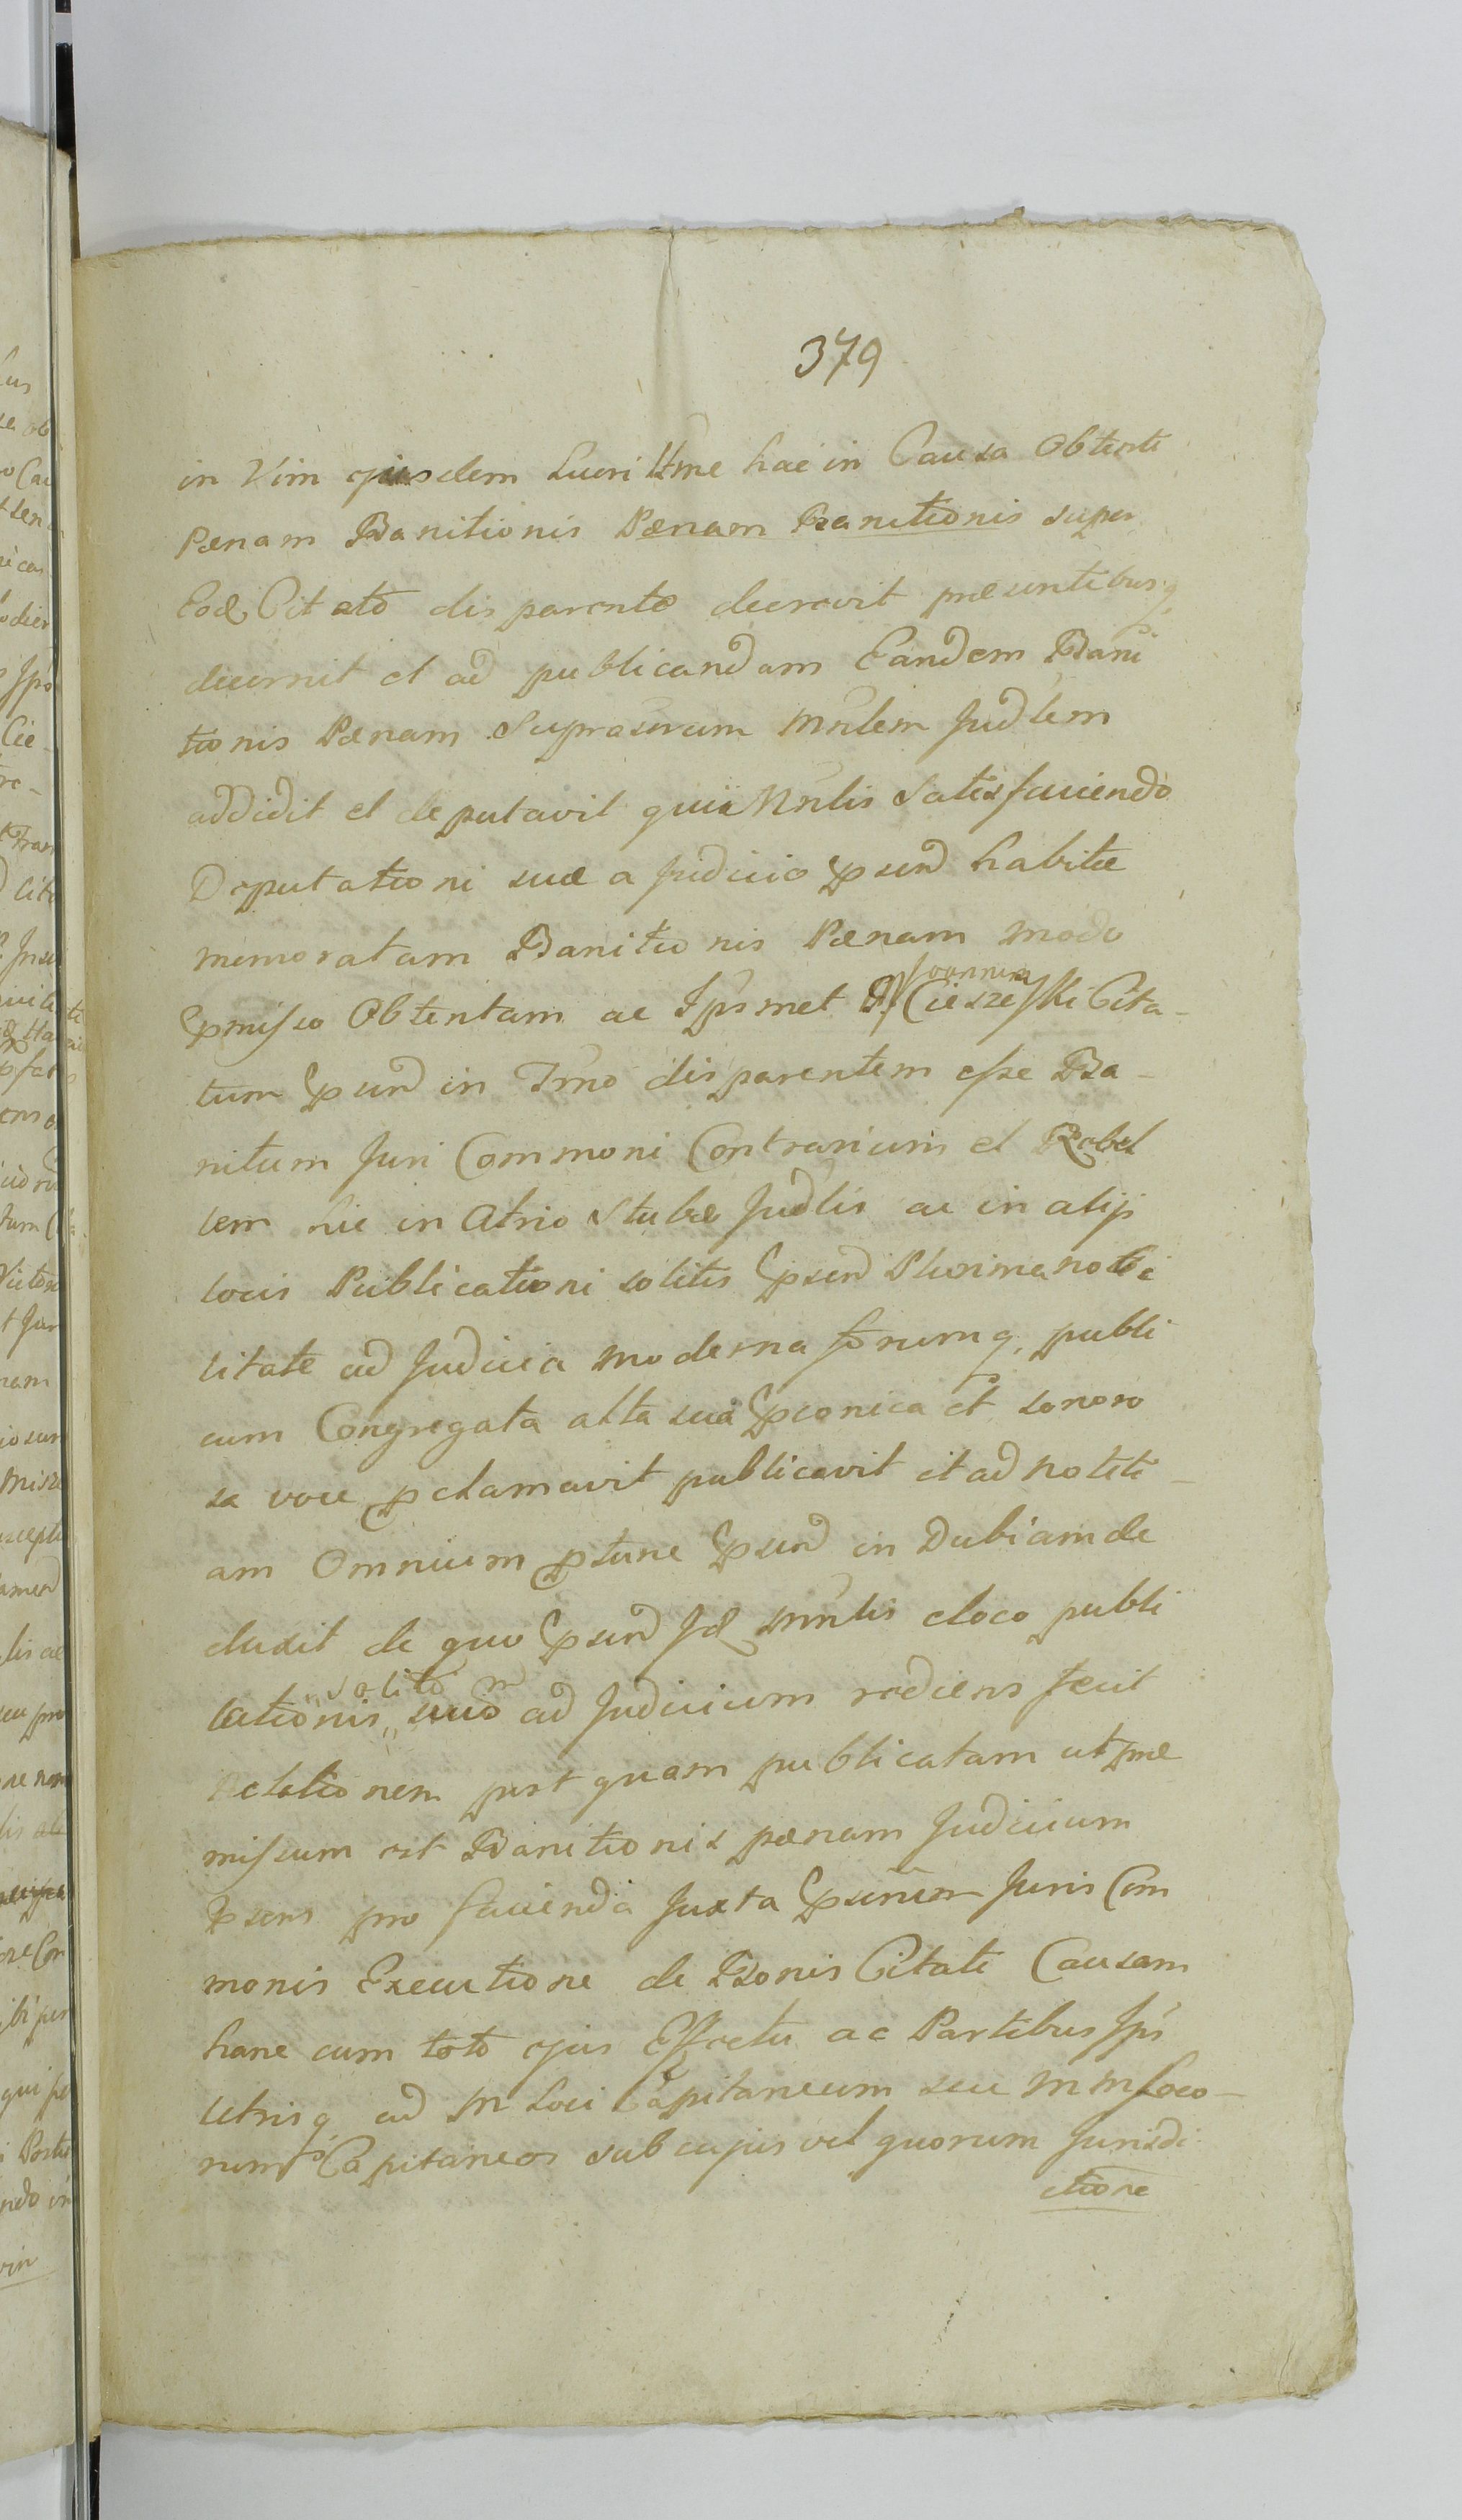 379
in Vim ejusdem Lucri Ltme hac in Causa Obtenti
Pænam Banitionis Pænam Banitionis super
Eod Citato disparente decrevit præsentibusq
decernit et ad publicandam Eandem Bani
tionis Pænam Supraseram Mnlem Judlem
addidit et deputavit quii Mnlis Satisfaciendo
Deputationi suæ a Judicio psend habitæ
memoratam Banitionis Pænam modo
pmisso Obtentam ac Ipsmet Joannem Cieszeski Cita-
tum psend in Tmno disparentem esse Ba-
nitum Juri Commoni Contrarium et Rebel
lem hic in Atrio Stubæ Judlis ac in alijs
locis Publicationi solitis psend Plurima nobi
litate ad Judicia moderna forumq publi
cum Congregata alta sua pconica et sonoro
sa voce pclamavit publicavit et ad notiti-
am Omnium ptunc psend in Dubiam de
duxit de quo psend Id Mnlis e loco publi
cationis solito suo ad Judicium rediens fecit
Relationem post quam publicatam ut præ
missum est Banitionis pænam Judicium
psens pro facienda Juxta pscriptum Juris Com
monis Executione de Bonis Citati Causam
hanc cum toto ejus Effectu ac Partibus Ips
Utrisq ad M Loci Capitaneum seu MM Loco-
rum Capitaneos sub cujus vel quorum Jurisdi
ctione